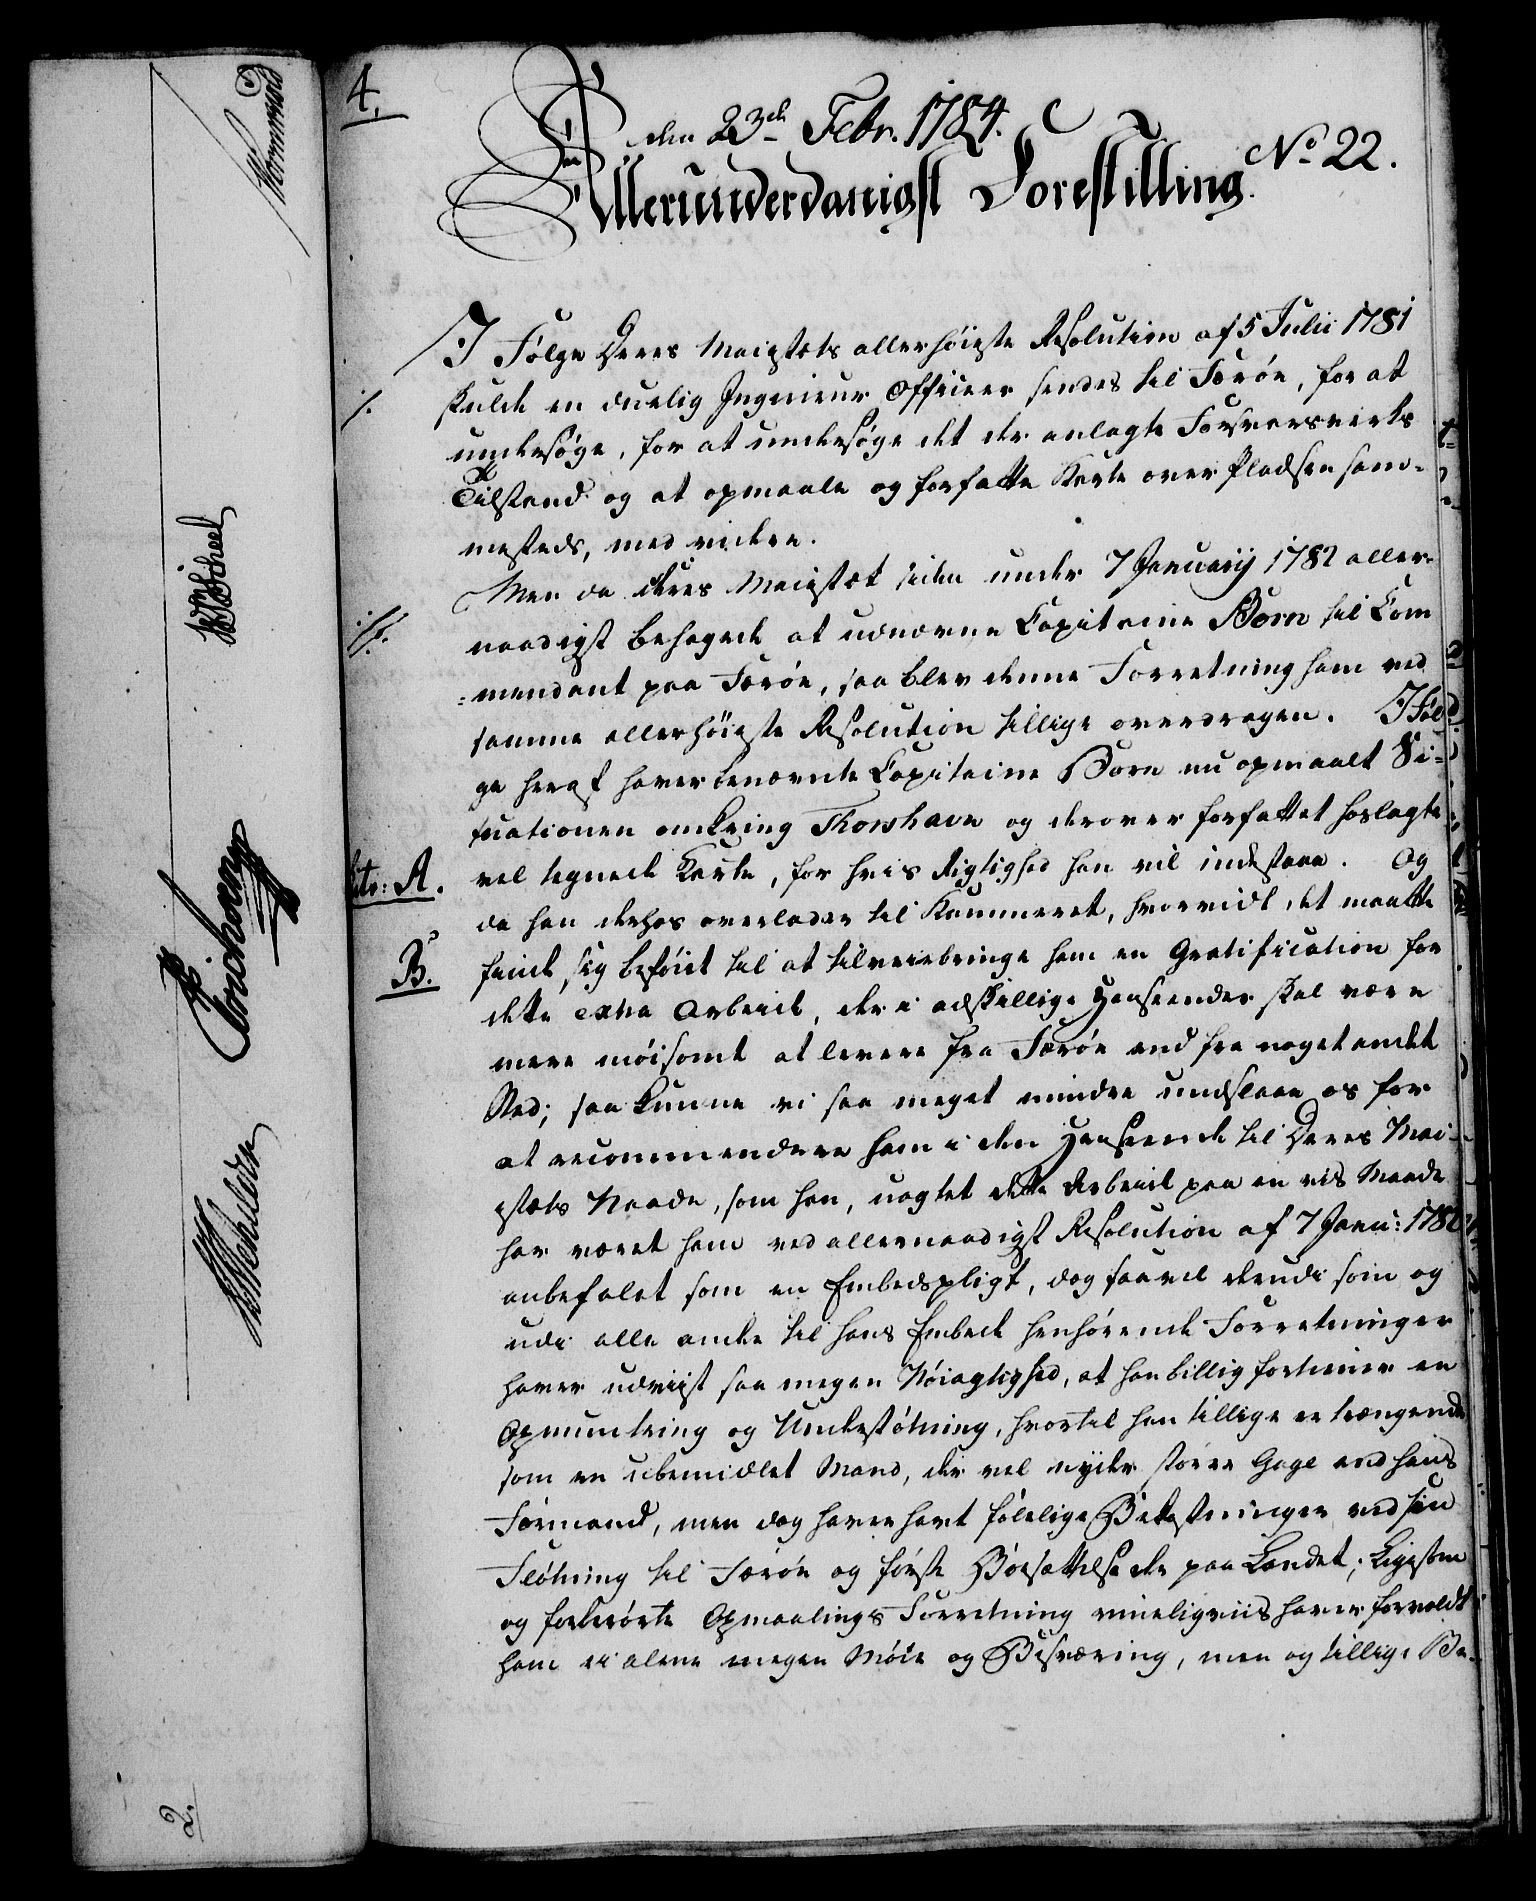 4.
den 23de Febr. 1784.
No 22.
Allerunderdanigst Forestilling.
I Følge Deres Maiestæts allerhöieste Resolution af 5 Julii 1781
skulde en duelig Ingenieur Officeer sendes til Færöe, for at
undersöge, for at undersöge det der anlagte Forsvarsverks
Tilstand og at opmaale og forfatte Karte over Pladsen sam-
mesteds, med videre.
Men da Deres Maiestæt siden under 7 Januarij 1782 aller-
naadigst behagede at udnævne Capitaine Born til Com
=mendant paa Færöe, saa blev denne Forretning ham ved
samme allerhöieste Resolution tillige overdragen. I Föl
ge heraf haver benævnte Capitaine Born nu opmaalt Si-
tuationen omkring Thorshavn og derover forfattet hoslagte
Litr: A. vel tegnede Karte, for hvis Rigtighed han vil indestaae. Og
da han derhos overlader til Kammeret, hvorvidt det maatte
B. finde sig beföiet til at tilveiebringe ham en Gratification for
dette extra Arbeide, der i adskillige Henseender skal være
mere möisomt at levere fra Færöe end fra noget andet
Sted; saa kunne vi saa meget mindre undslaae os for
at recommendere ham i den Henseende til Deres Mai-
estæts Naade, som han, uagtet dette Arbeide paa en vis Maade
har været ham ved allernaadigst Resolution af 7 Janu: 1782
anbefalet som en Embedspligt, dog saavel derudi som og
udi alle andre til hans Embede henhörende Forretninger
haver udviist saa megen Nöiagtighed, at han billig fortiener en
Opmuntring og Understötning, hvortil han tillige er trængende
som en ubemidlet Mand, der vel nyder större Gage end hans
Formand, men dog haver havt fölelige Bekostninger ved sin
Flötning til Færöe og förste Boesættelse der paa Landet; Ligesom
og forberörte Opmaalings Forretning rimeligviis haver forvoldt
ham ei alene megen Möie og Besværing, men og tillige Be-
WScheel
2.